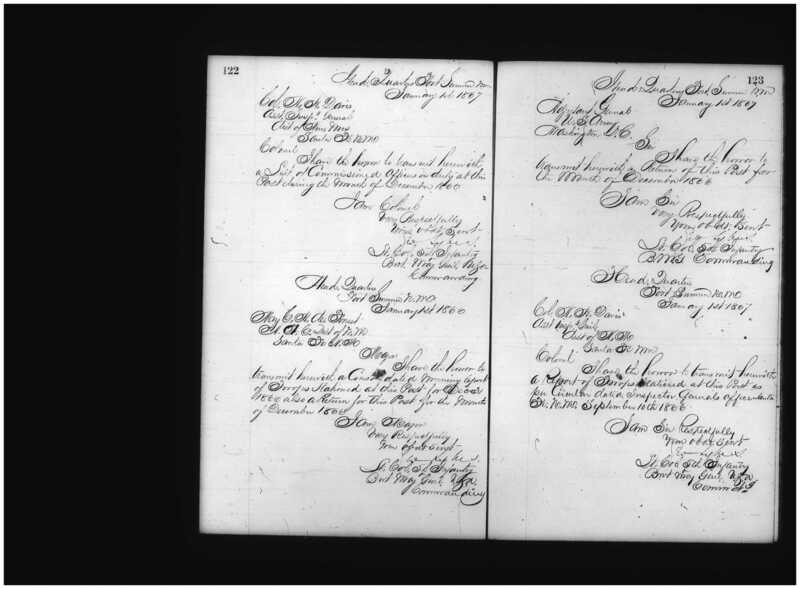 122
Head Quarters Fort Sumner N.M.
January 1st 1867
Col. N. H. Davis
Asst. Insp. General
Dist of New Mex
Santa Fe N.M.
Colonel
I have the honor to transmit herewith
a List of Commissioned Officers on duty at this
Post during the Month of December 1866
I am Colonel
Very Respectfully
Your obdt Servt
Lt. Col. 5th Infantry
Bvt. Maj Genl.
Commanding
Head Quarters
Fort Sumner N.M.
January 1st 1866
Maj C. H. De Forrest
A. A. Dist of N.M.
Santa Fe N.M.
Major
I have the honor to
transmit herewith a Consolidated Morning Report
of Troops Stationed at this Post for
1866 also a Return for this Post for the Month
of December 1866
I am Major
Very Respectfully
Your Obdt Servt
Lt. Col. 5th Infantry
Bvt Maj Genl.
Commanding
123
Head Quarters Fort Sumner N.M.
January 1st 1867
Adjutant General
U.S. Army
Washington D.C.
Sir
I have the honor to
transmit herewith a Return of this Post for
the Month of December 1866
I am Sir
Very Respectfully
Your obdt. Servt
Lt. Col. 5th Infantry
Commanding
Head Quarters
Fort Sumner N.M.
January 1st 1867
Col. N. H. Davis
Asst Insp. Genl.
Dist of N.M.
Santa Fe N.M.
Colonel
I have the honor to transmit herewith
a Report of Troops stationed at this Post as
per Circular dated Inspector Generals Office Santa
Fe N.M. September 10th 1866
I am Sir Respectfully
Your Obdt Servt
Lt. Col 5th Infantry
Bvt Maj Genl.